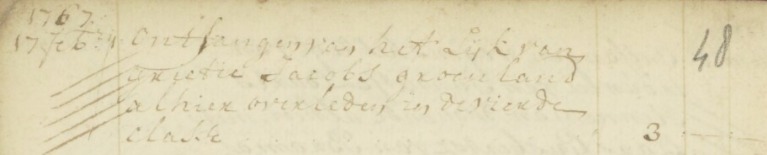 1767
17 feb ontfangen van het Lijk van 48
grietie Jacobs groenland
alhier overleden in de vierde
classe 3